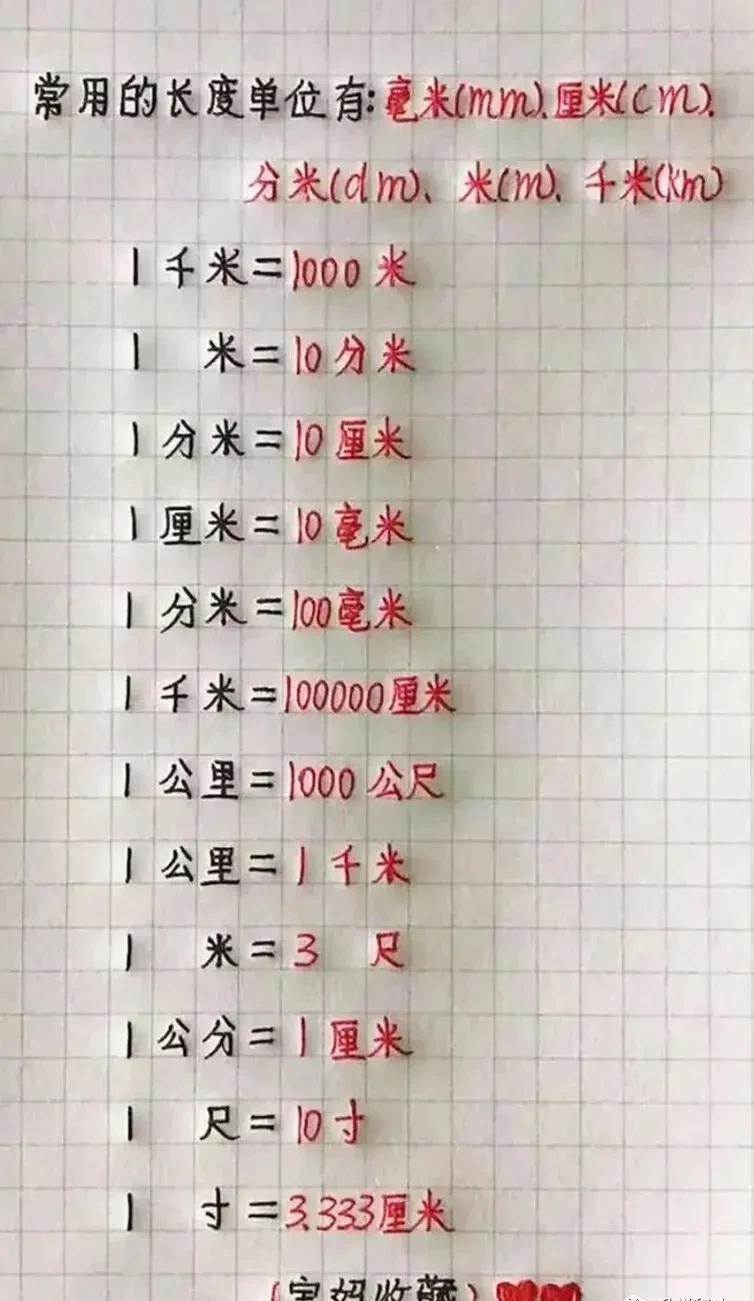 常用的长度单位有:毫米(mm)、厘米(cm)、
分米(dm)、米(m)、千米(km)
1千米=1000米
1 米=10分米
1分米=10厘米
1厘米=10毫米
1分米=100毫米
1千米=100000厘米
1公里=1000公尺
1公里=1千米
1 米=3 尺
1公分=1厘米
1 尺=10寸
1 寸=3.333厘米
(宝妈收藏)